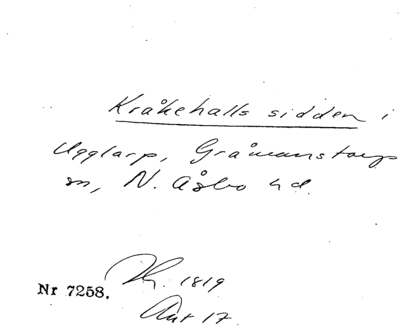 Kråkehalls sidden i
Ugglarp, Gråmanstorps
sn, N. Åsbo hd.
Nr 7258.
1819
Akt 17